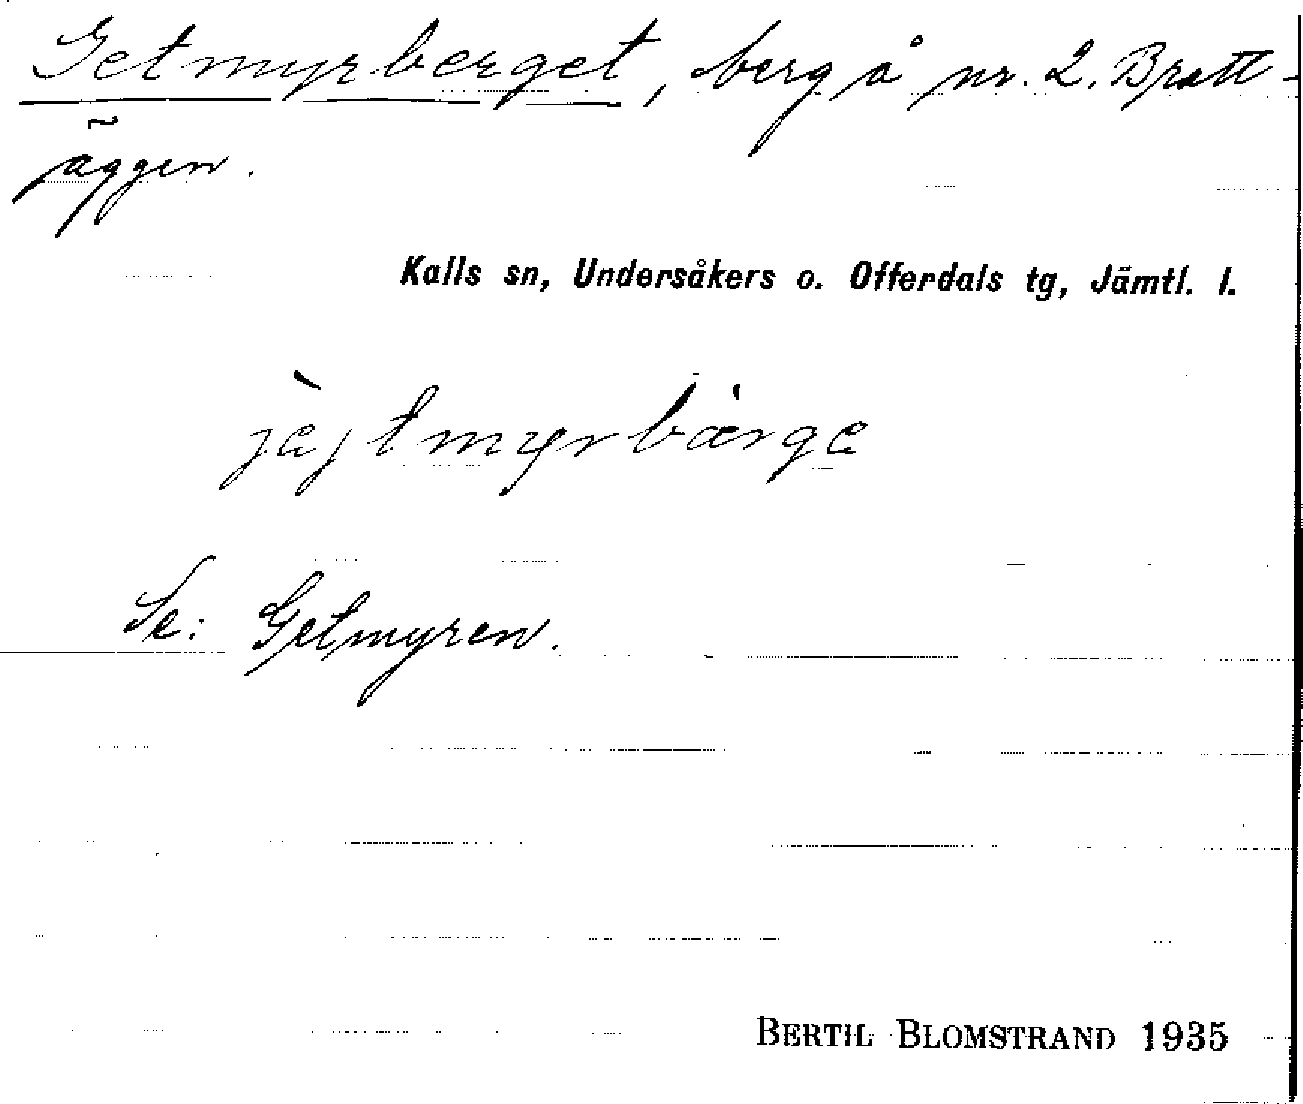 Getmyrberget, berg å nr. 2. Bratt-
äggen.
Kalls sn, Undersåkers o. Offerdals tg, Jämtl. l.
jèjtmyrbárge
Se: Getmyren.
BERTIL BLOMSTRAND 1935